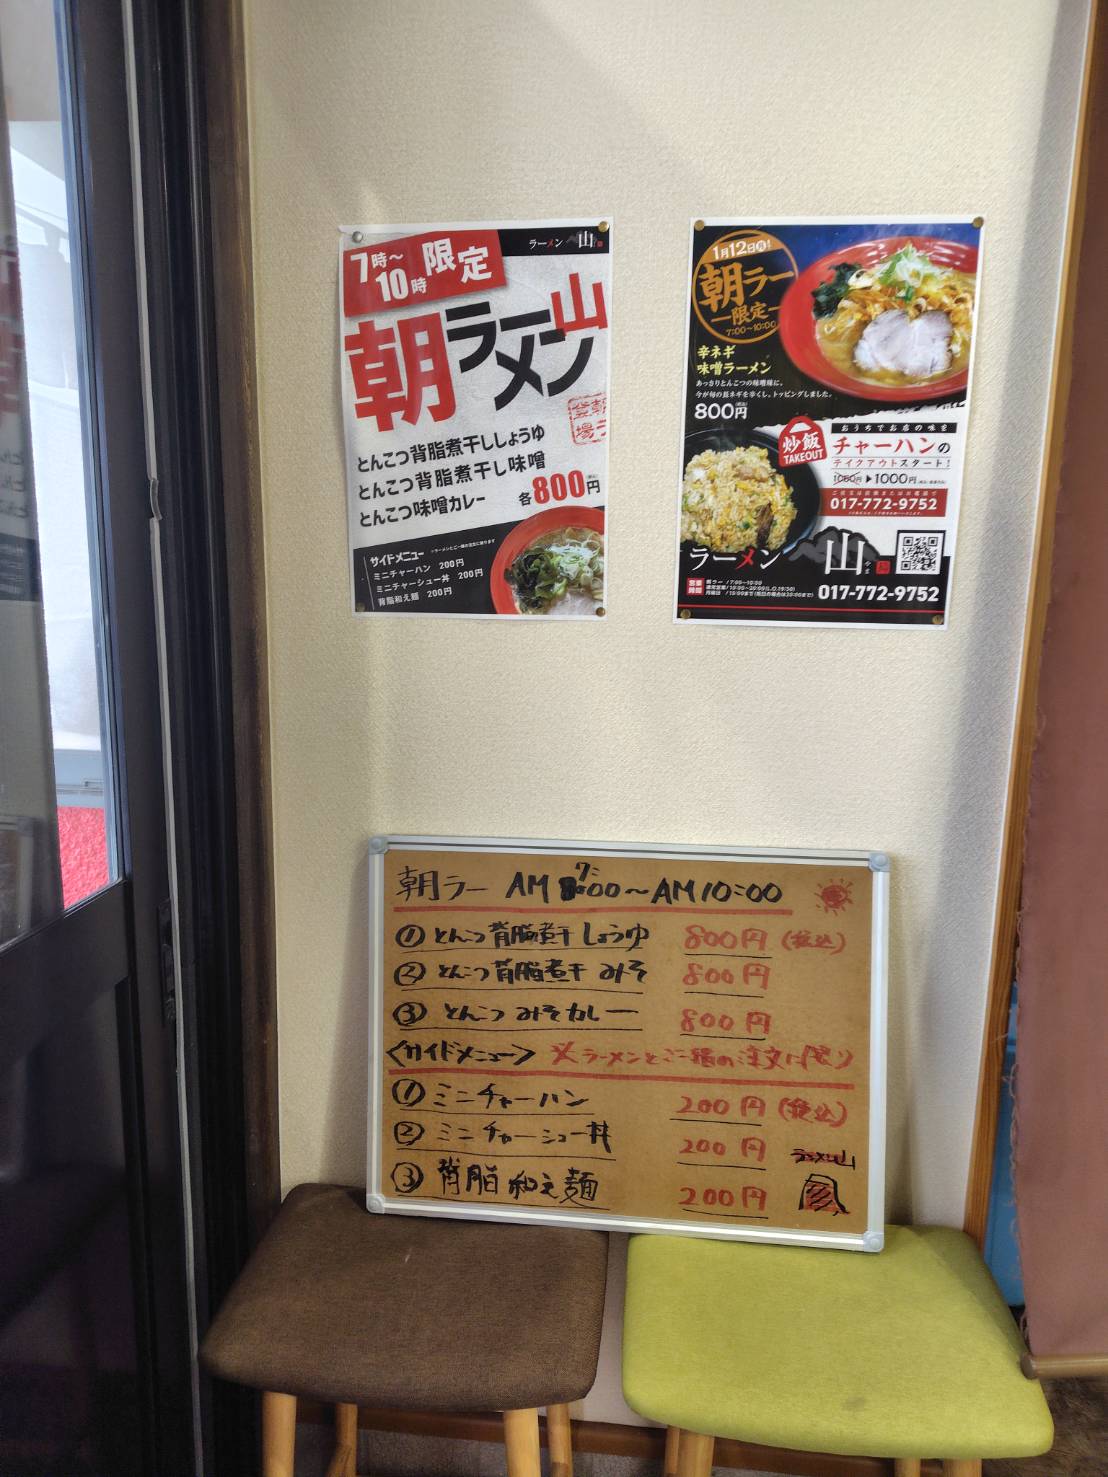 7時～10時 限定
ラーメン 山
朝ラー山
メン
朝ラー登場
とんこつ背脂煮干ししょうゆ
とんこつ背脂煮干し味噌
とんこつ味噌カレー
各800円
サイドメニュー ※ラーメンとご一緒の注文に限ります
ミニチャーハン 200円
ミニチャーシュー丼 200円
背脂和え麺 200円
1月12日(月)!
朝ラー
限定
7:00～10:00
辛ネギ
味噌ラーメン
あっさりとんこつの味噌味に。
今が旬の長ネギを辛くし、トッピングしました。
800円(税込)
炒飯
TAKEOUT
おうちでお店の味を
チャーハンの
テイクアウトスタート!
1080円▶1000円
017-772-9752
ラーメン 山 やま
営業時間
朝ラー / 7:00～10:00
017-772-9752
朝ラー AM 7:00～AM10:00
① とんこつ背脂煮干しょうゆ 800円(税込)
② とんこつ背脂煮干みそ 800円
③ とんこつみそカレー 800円
<サイドメニュー> ※ラーメンとご一緒の注文に限り
① ミニチャーハン 200円(税込)
② ミニチャーシュー丼 200円
③ 背脂和え麺 200円
ラーメン山